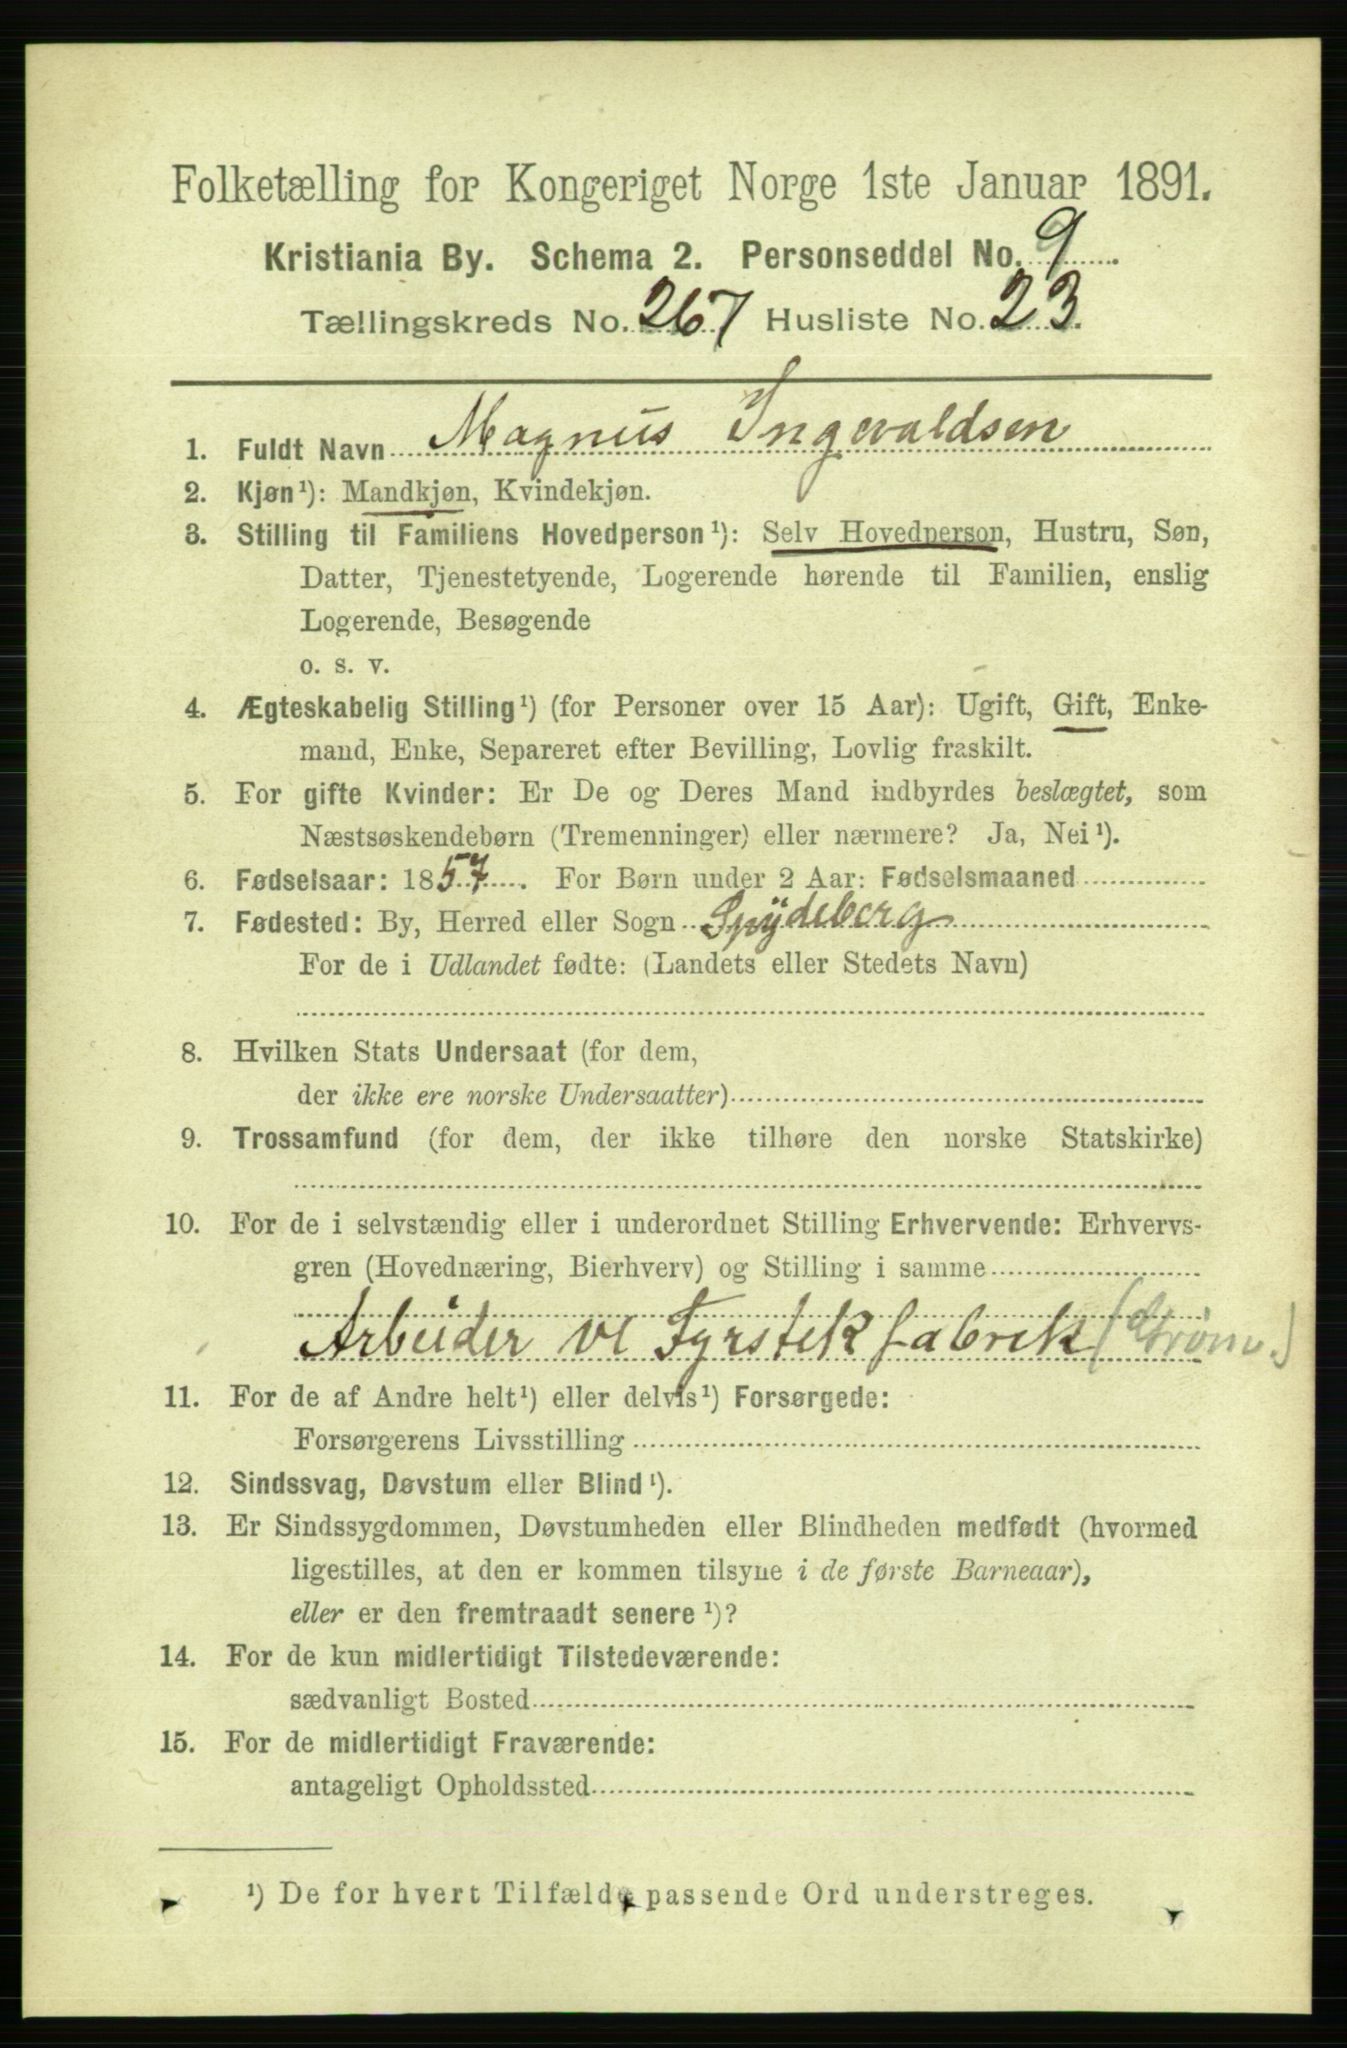 Folketælling for Kongeriget Norge 1ste Januar 1891.
Kristiania By. Schema 2. Personseddel No. 9
Tællingskreds No. 267 Husliste No. 23.
1. Fuldt Navn Magnus Ingevaldsen
2. Kjøn¹): Mandkjøn, Kvindekjøn.
3. Stilling til Familiens Hovedperson¹): Selv Hovedperson, Hustru, Søn,
Datter, Tjenestetyende, Logerende hørende til Familien, enslig
Logerende, Besøgende
o. s. v.
4. Ægteskabelig Stilling¹) (for Personer over 15 Aar): Ugift, Gift, Enke-
mand, Enke, Separeret efter Bevilling, Lovlig fraskilt.
5. For gifte Kvinder: Er De og Deres Mand indbyrdes beslægtet, som
Næstsøskendebørn (Tremenninger) eller nærmere? Ja, Nei¹).
6. Fødselsaar: 1857. For Børn under 2 Aar: Fødselsmaaned
7. Fødested: By, Herred eller Sogn Spydeberg
For de i Udlandet fødte: (Landets eller Stedets Navn)
8. Hvilken Stats Undersaat (for dem,
der ikke ere norske Undersaatter)
9. Trossamfund (for dem, der ikke tilhøre den norske Statskirke)
10. For de i selvstændig eller i underordnet Stilling Erhvervende: Erhvervs-
gren (Hovednæring, Bierhverv) og Stilling i samme
Arbeider ve Fyrstekfabrik (Grønv.)
11. For de af Andre helt¹) eller delvis¹) Forsørgede:
Forsørgerens Livsstilling
12. Sindssvag, Døvstum eller Blind¹).
13. Er Sindssygdommen, Døvstumheden eller Blindheden medfødt (hvormed
ligestilles, at den er kommen tilsyne i de første Barneaar),
eller er den fremtraadt senere¹)?
14. For de kun midlertidigt Tilstedeværende:
sædvanligt Bosted
15. For de midlertidigt Fraværende:
antageligt Opholdssted
¹) De for hvert Tilfælde passende Ord understreges.